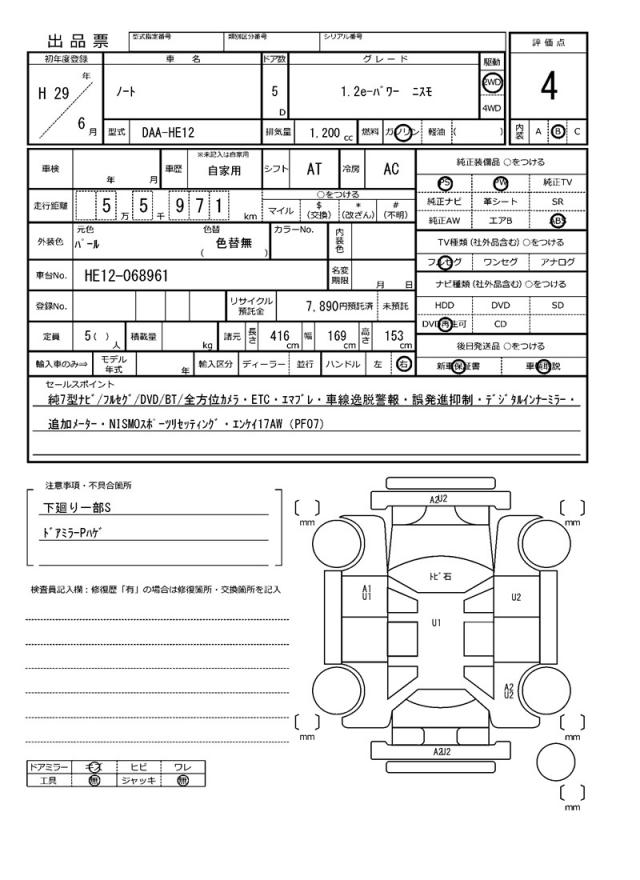 出品票
型式指定番号 類別区分番号 シリアル番号
評価点
初年度登録 車名 ドア数 グレード 駆動
H 29 年 6 月
ノート
5 D
1.2e-パワー ニスモ
2WD
4WD
4
型式 DAA-HE12 排気量 1.200 cc 燃料 ガソリン 軽油 ( )
内装 A B C
車検 年 月 車歴 ※未記入は自家用 自家用 シフト AT 冷房 AC
走行距離 5 万 5 千 9 7 1 km
○をつける
マイル $(交換) *(改ざん) #(不明)
外装色 元色 パール 色替 色替無 ( ) カラーNo. 内装色
車台No. HE12-068961 名変期限 月 日
登録No. リサイクル預託金 7,890円預託済 未預託
定員 5( ) 人 積載量 kg 諸元 長さ 416 cm 幅 169 cm 高さ 153 cm
輸入車のみ⇒ モデル年式 年 輸入区分 ディーラー 並行 ハンドル 左 右
純正装備品 ○をつける
PS PW 純正TV
純正ナビ 革シート SR
純正AW エアB ABS
TV種類(社外品含む)○をつける
フルセグ ワンセグ アナログ
ナビ種類(社外品含む)○をつける
HDD DVD SD
DVD再生可 CD
後日発送品 ○をつける
新車保証書 車輌取説
セールスポイント
純7型ナビ/フルセグ/DVD/BT/全方位カメラ・ETC・エマブレ・車線逸脱警報・誤発進抑制・デジタルインナーミラー・
追加メーター・NISMOスポーツリセッティング・エンケイ17AW(PF07)
注意事項・不具合箇所
下廻り一部S
ドアミラーPハゲ
検査員記入欄：修復歴「有」の場合は修復箇所・交換箇所を記入
ドアミラー キズ ヒビ ワレ
工具 無 ジャッキ 無
A2U2
mm
mm
トビ石
A1
U1
U2
U1
A2
U2
mm
mm
A2U2
mm